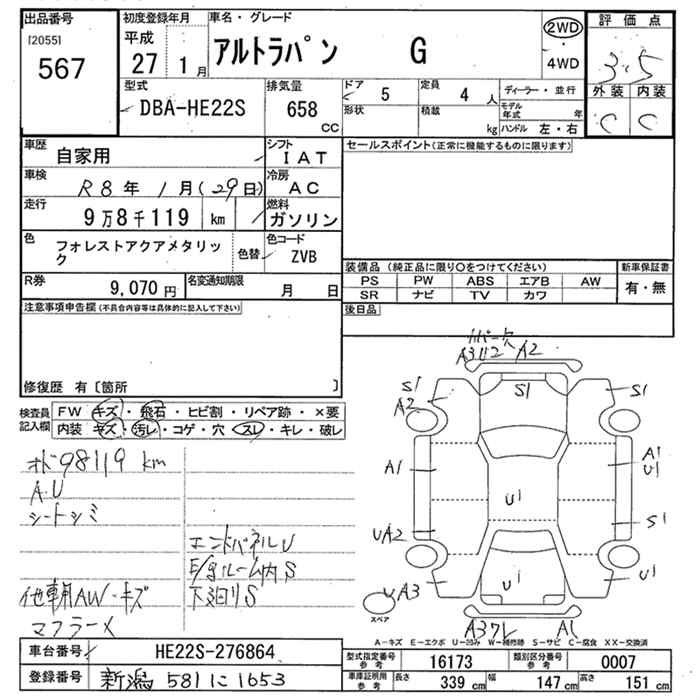 出品番号
[2055]
567
初度登録年月
平成
27 1月
車名・グレード
アルトラパン G
2WD
4WD
評価点
3.5
外装 内装
C C
型式
DBA-HE22S
排気量
658 cc
ドア
5
形状
定員
4 人
積載
kg
ディーラー・並行
モデル年式 年
ハンドル 左・右
車歴
自家用
シフト
IAT
車検
R8年1月(29日)
冷房
AC
走行
9万8千119 km
燃料
ガソリン
色
フォレストアクアメタリック
色替
色コード
ZVB
R券
9,070円
名変通知期限
月 日
セールスポイント(正常に機能するものに限ります)
装備品(純正品に限り○をつけてください)
新車保証書
PS PW ABS エアB AW
SR ナビ TV カワ
有・無
後日品
注意事項申告欄(不具合内容等は具体的に記入して下さい)
修復歴 有〔箇所 〕
検査員記入欄
FW キズ・飛石・ヒビ割・リペア跡・×要
内装 キズ・汚レ・コゲ・穴・スレ・キレ・破レ
オド98119 km
A.U
シートシミ
エンドパネルU
E/gルーム内S
他車用AW・キズ
下廻りS
マフラーメ
A2
S1
S1
S1
A2
A1
A1
U1
U1
S1
UA2
U1
U1
UA3
スペア
A1
A-キズ E-エクボ U-凹み W-補修跡 S-サビ C-腐食 XX-交換済
車台番号
HE22S-276864
登録番号
新潟 581 に 1653
型式指定番号
参考
16173
類別区分番号
参考
0007
車庫証明用
参考
長さ 339 cm
幅 147 cm
高さ 151 cm